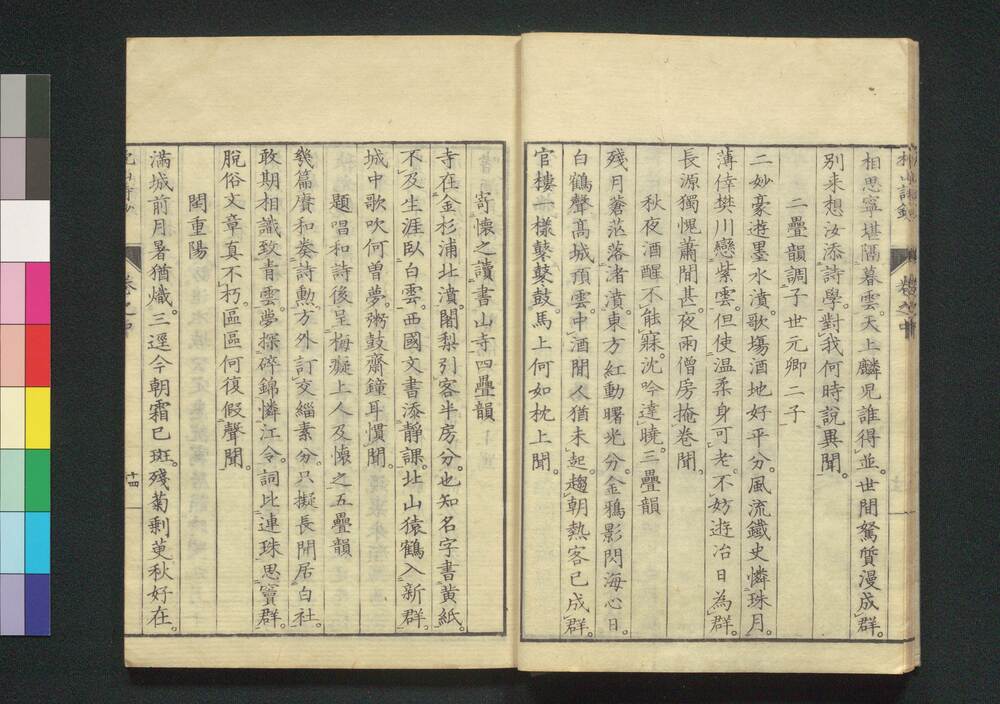 相思寧堪隔暮雲。天上麟兒誰得並。世間駑質漫成群。
別来想汝添詩學。對我何時說異聞。
二疊韻調子世元卿二子
二妙豪遊墨水濆。歌塲酒地好平分。風流鐵史憐珠月。
薄倖樊川戀紫雲。但使温柔身可老。不妨遊冶日為群。
長源獨愧蕭閒甚。夜雨僧房掩卷聞。
秋夜酒醒不能寐。沈吟達曉。三疊韻
殘月蒼茫落渚濆。東方紅動曙光分。金鴉影閃海心日。
白鶴聲髙城頂雲。中酒閒人猶未起。趨朝熱客已成群。
官樓一樣鼕鼕鼓。馬上何如枕上聞。
寄懷之讀書山寺四疊韻
寺在金杉浦北濆。闍梨引客半房分。也知名字書黄紙。
不及生涯臥白雲。西國文書添静課。北山猿鶴入新群。
城中歌吹何曽夢。粥鼓齋鐘耳慣聞。
題唱和詩後呈梅癡上人及懷之五疊韻
幾篇賡和奏詩勲。方外訂交緇素分。只擬長閒居白社。
敢期相識致青雲。夢探碎錦憐江令。詞比連珠思竇群。
脫俗文章真不朽。區區何復假聲聞。
閏重陽
滿城前月暑猶熾。三逕今朝霜已斑。殘菊剩萸秋好在。
十四